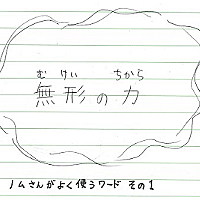 むけい ちから
無形の力
ノムさんがよく使うワード その1